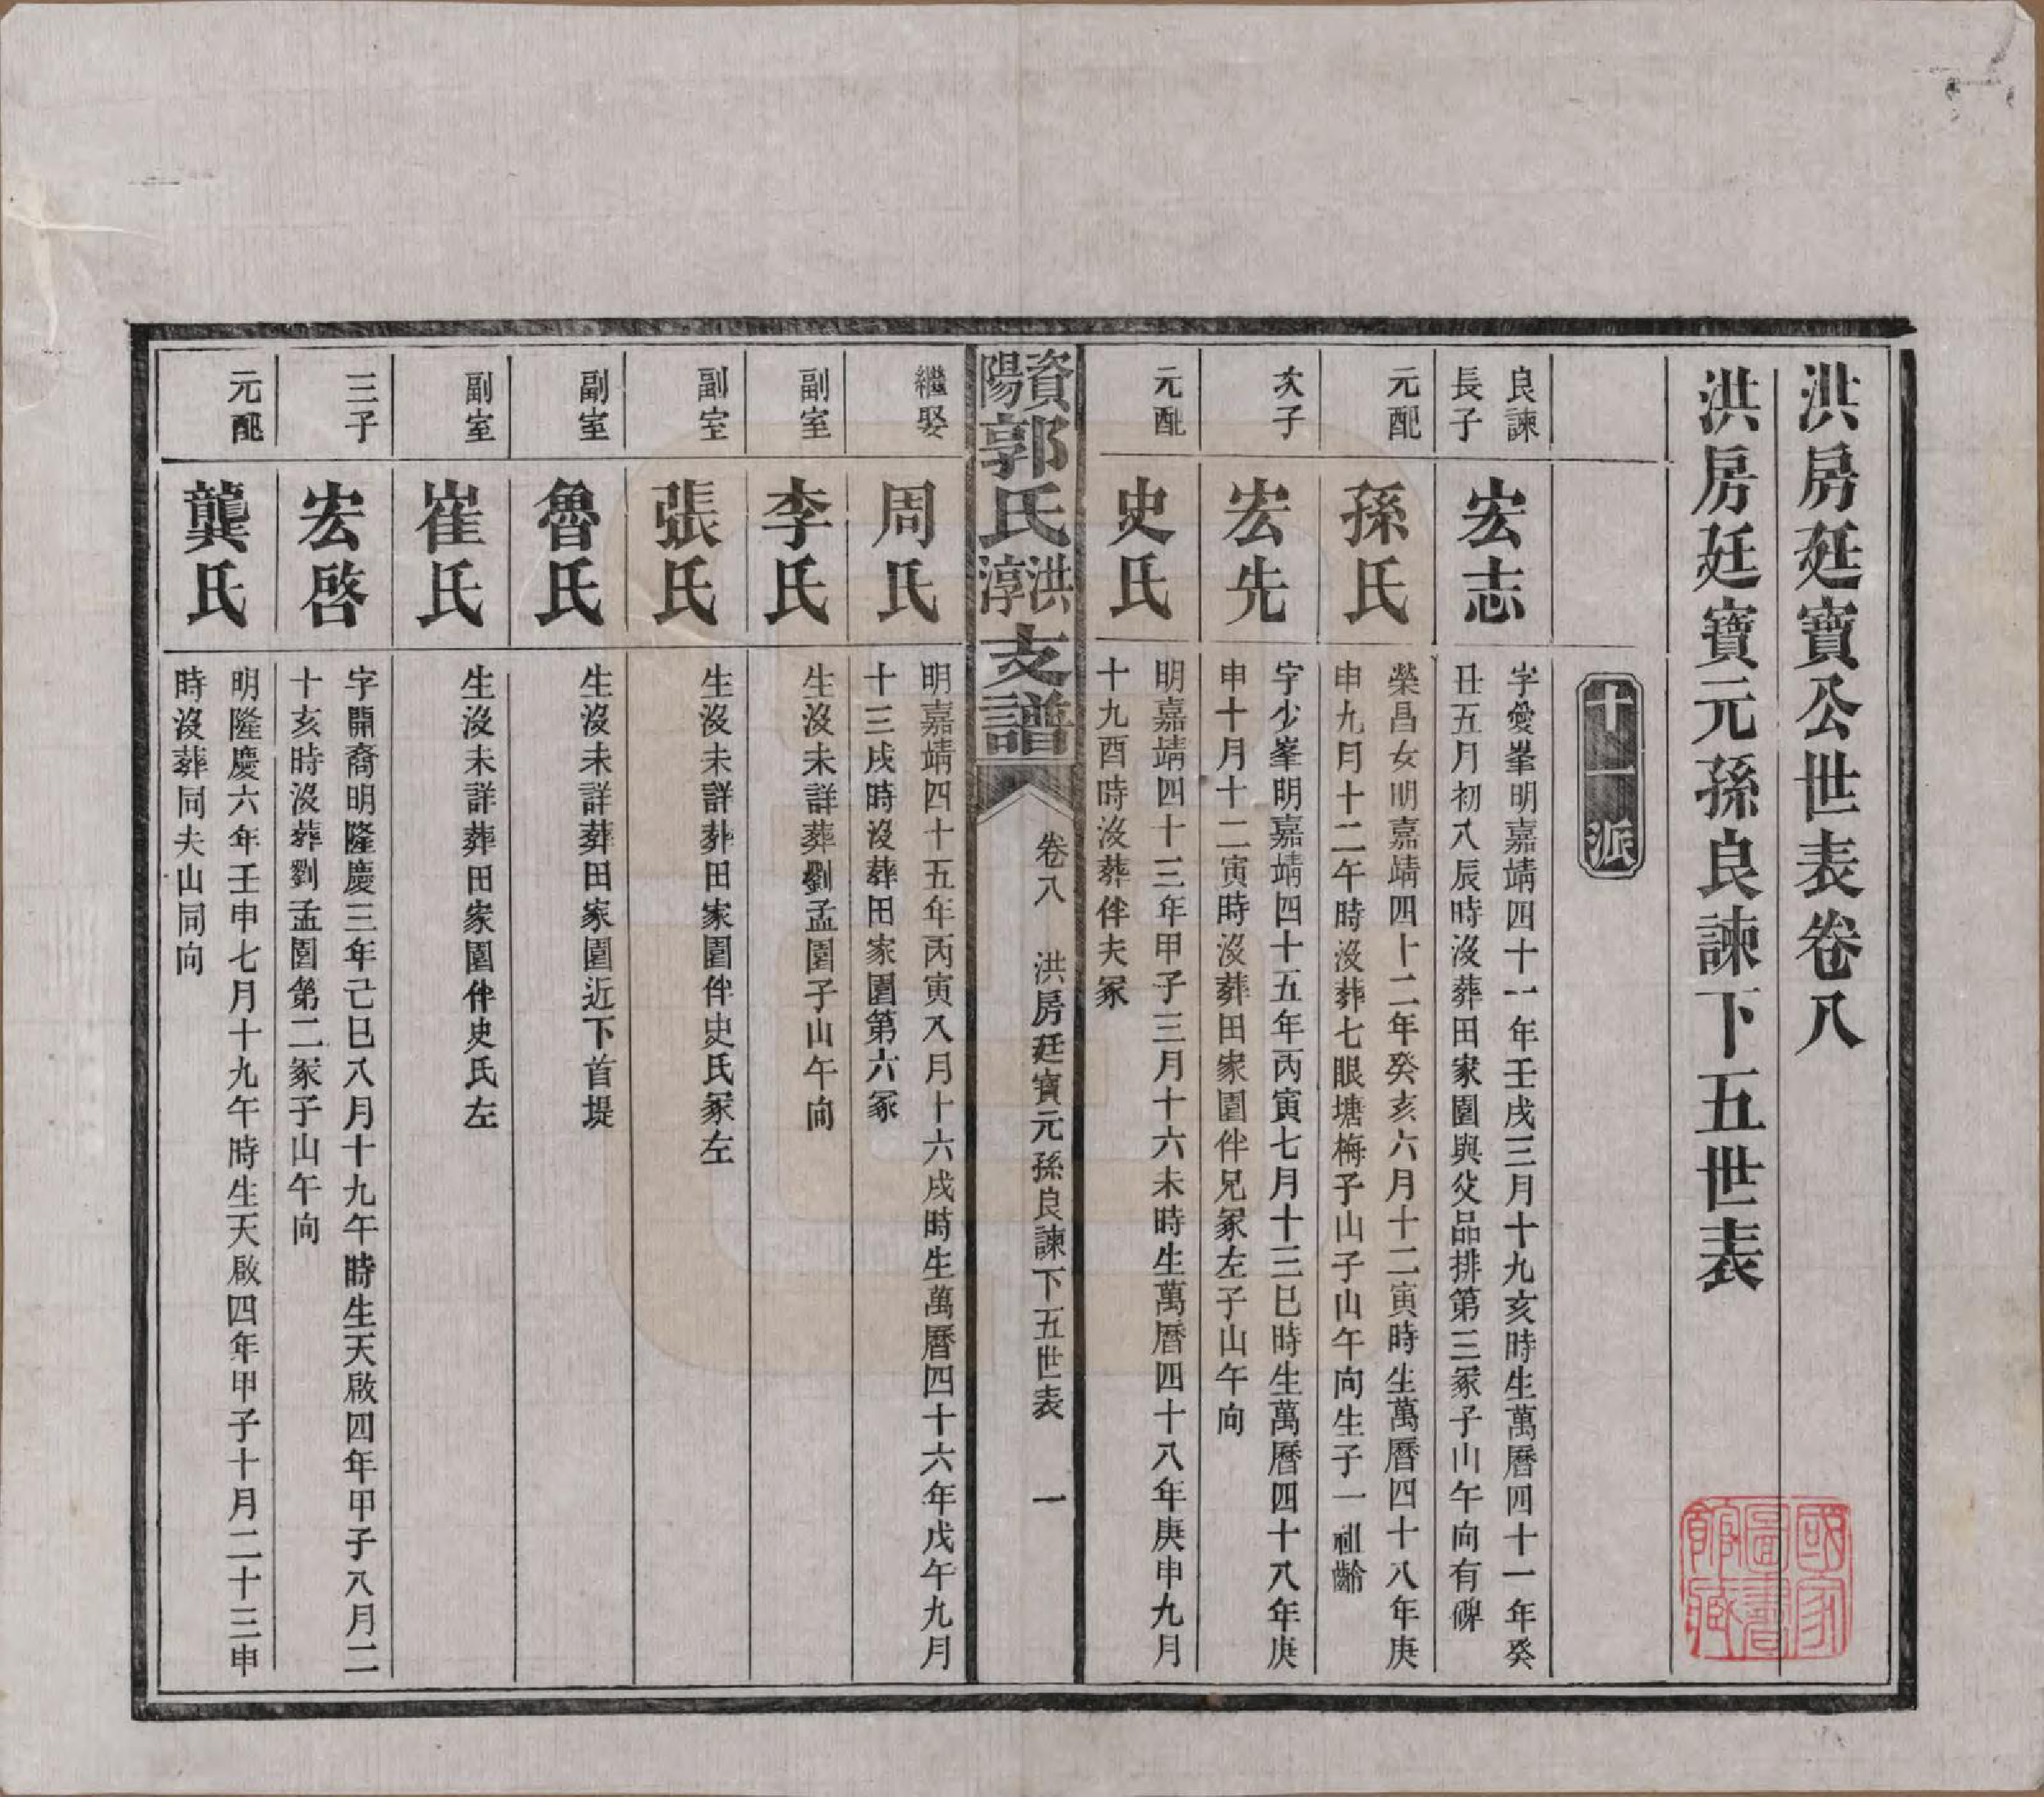 洪房廷寶公世表卷八
洪房廷寶元孫良諫下五世表
十一派
良諫
長子
宏志
字愛峯明嘉靖四十一年壬戌三月十九亥時生萬曆四十一年癸
丑五月初八辰時沒葬田家園與父品排第三冢子山午向有碑
元配
孫氏
榮昌女明嘉靖四十二年癸亥六月十二寅時生萬曆四十八年庚
申九月十二午時沒葬七眼塘梅子山子山午向生子一祖齡
次子
宏先
字少峯明嘉靖四十五年丙寅七月十三巳時生萬曆四十八年庚
申十月十二寅時沒葬田家園伴兄冢左子山午向
元配
史氏
明嘉靖四十三年甲子三月十六未時生萬曆四十八年庚申九月
十九酉時沒葬伴夫冢
資陽郭氏洪淳支譜
卷八
洪房廷寶元孫良諫下五世表
一
繼娶
周氏
明嘉靖四十五年丙寅八月十六戌時生萬曆四十六年戊午九月
十三戌時沒葬田家園第六冢
副室
李氏
生沒未詳葬劉孟園子山午向
副室
張氏
生沒未詳葬田家園伴史氏冢左
副室
魯氏
生沒未詳葬田家園近下首堤
副室
崔氏
生沒未詳葬田家園伴史氏左
三子
宏啓
字開裔明隆慶三年己巳八月十九午時生天啟四年甲子八月二
十亥時沒葬劉孟園第二冢子山午向
元配
龔氏
明隆慶六年壬申七月十九午時生天啟四年甲子十月二十三申
時沒葬同夫山同向
國家
圖書
館藏